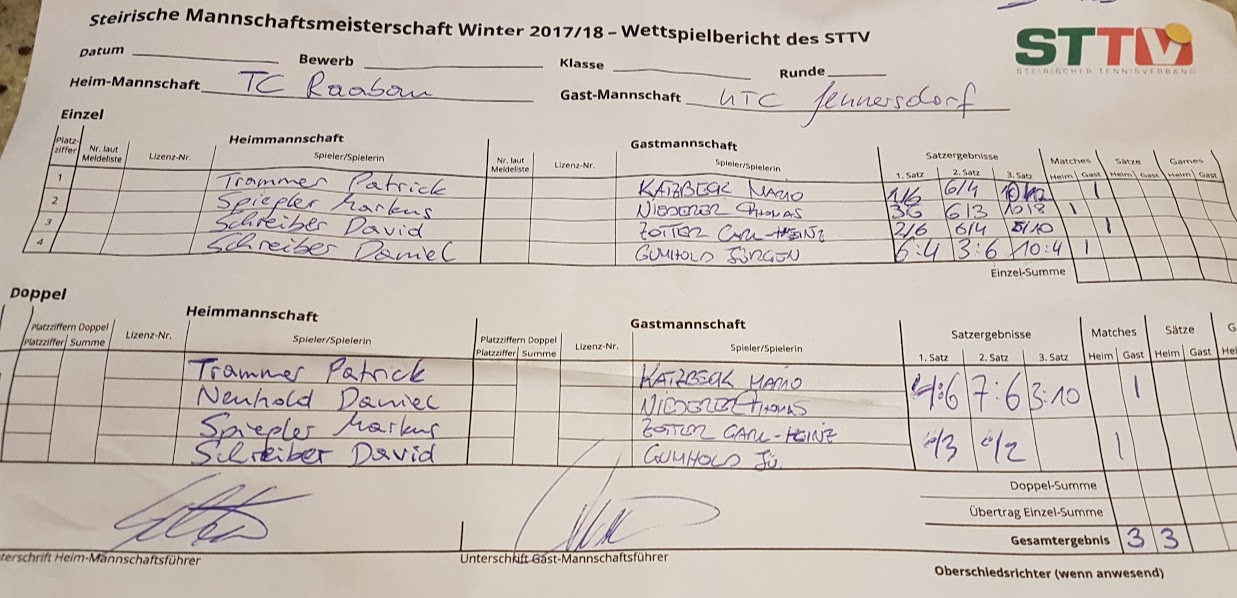 Steirische Mannschaftsmeisterschaft Winter 2017/18 – Wettspielbericht des STTV
STTV
STEIRISCHER TENNISVERBAND
Datum Bewerb Klasse Runde
Heim-Mannschaft TC Raabau Gast-Mannschaft UTC Jennersdorf
Einzel
Heimmannschaft Gastmannschaft
Platz-ziffer Nr. laut Meldeliste Lizenz-Nr. Spieler/Spielerin Nr. laut Meldeliste Lizenz-Nr. Spieler/Spielerin Satzergebnisse Matches Sätze Games
1. Satz 2. Satz 3. Satz Heim Gast Heim Gast Heim Gast
1 Trammer Patrick KATZBECK MARIO 1/6 6/4 10/12 1
2 Spiepler Markus NIEDERER THOMAS 36 6/3 10/8 1
3 Schreiber David ZOTTER CARL-HEINZ 2/6 6/4 8/10 1
4 Schreiber Daniel GUMHOLD JÜRGEN 6:4 3:6 10:4 1
Einzel-Summe
Doppel
Heimmannschaft Gastmannschaft
Platzziffern Doppel Lizenz-Nr. Spieler/Spielerin Platzziffern Doppel Lizenz-Nr. Spieler/Spielerin Satzergebnisse Matches Sätze G
Platzziffer Summe Platzziffer Summe 1. Satz 2. Satz 3. Satz Heim Gast Heim Gast Hei
Trammer Patrick KATZBECK MARIO 4:6 7:6 3:10 1
Neuhold Daniel NIEDERER THOMAS
Spiepler Markus ZOTTER CARL-HEINZ 6/3 6/2 1
Schreiber David GUMHOLD JÜ.
Doppel-Summe
Übertrag Einzel-Summe
Gesamtergebnis 3 3
terschrift Heim-Mannschaftsführer Unterschrift Gast-Mannschaftsführer
Oberschiedsrichter (wenn anwesend)